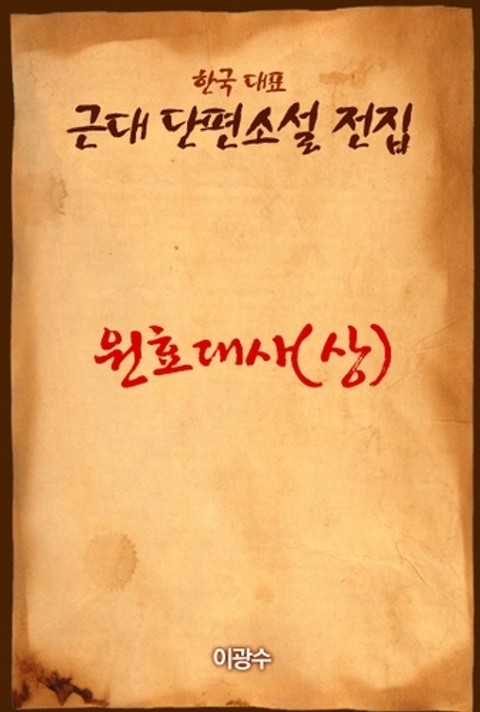 한국 대표
근대 단편소설 전집
원효대사(상)
이광수